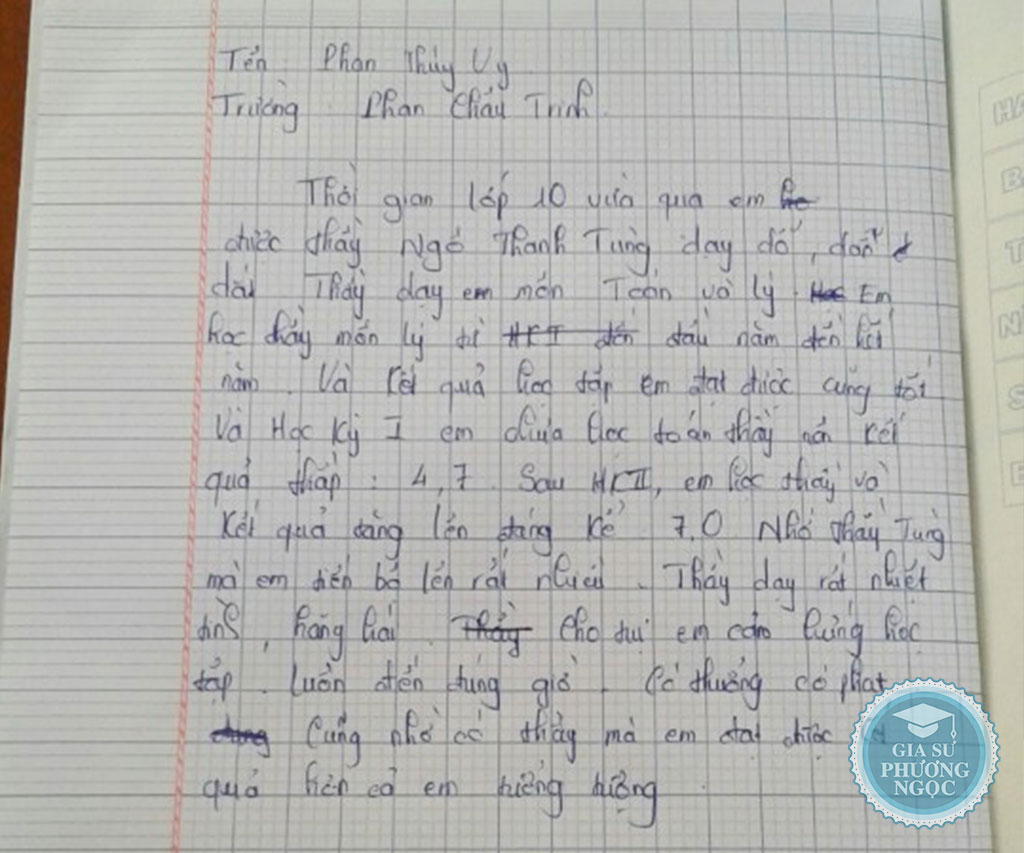 Tên Phan Thúy Vy
Trường Phan Châu Trinh
Thời gian lớp 10 vừa qua em
được thầy Ngô Thanh Tùng dạy dỗ, dẫn
dắt Thầy dạy em môn Toán và lý. Em
học thầy môn lý từ đầu năm đến hết
năm. Và kết quả học tập em đạt được cũng tốt
Và Học Kỳ I em chưa học toán thầy nên kết
quả thấp : 4,7. Sau HKII, em học thầy và
kết quả tăng lên đáng kể 7.0 Nhờ thầy Tùng
mà em tiến bộ lên rất nhiều. Thầy dạy rất nhiệt
tình, hăng hái. Cho tụi em cảm hứng học
tập. Luôn đến đúng giờ. Có thưởng có phạt
Cũng nhờ có thầy mà em đạt được
quả
GIA SƯ
PHƯỢNG
NGỌC